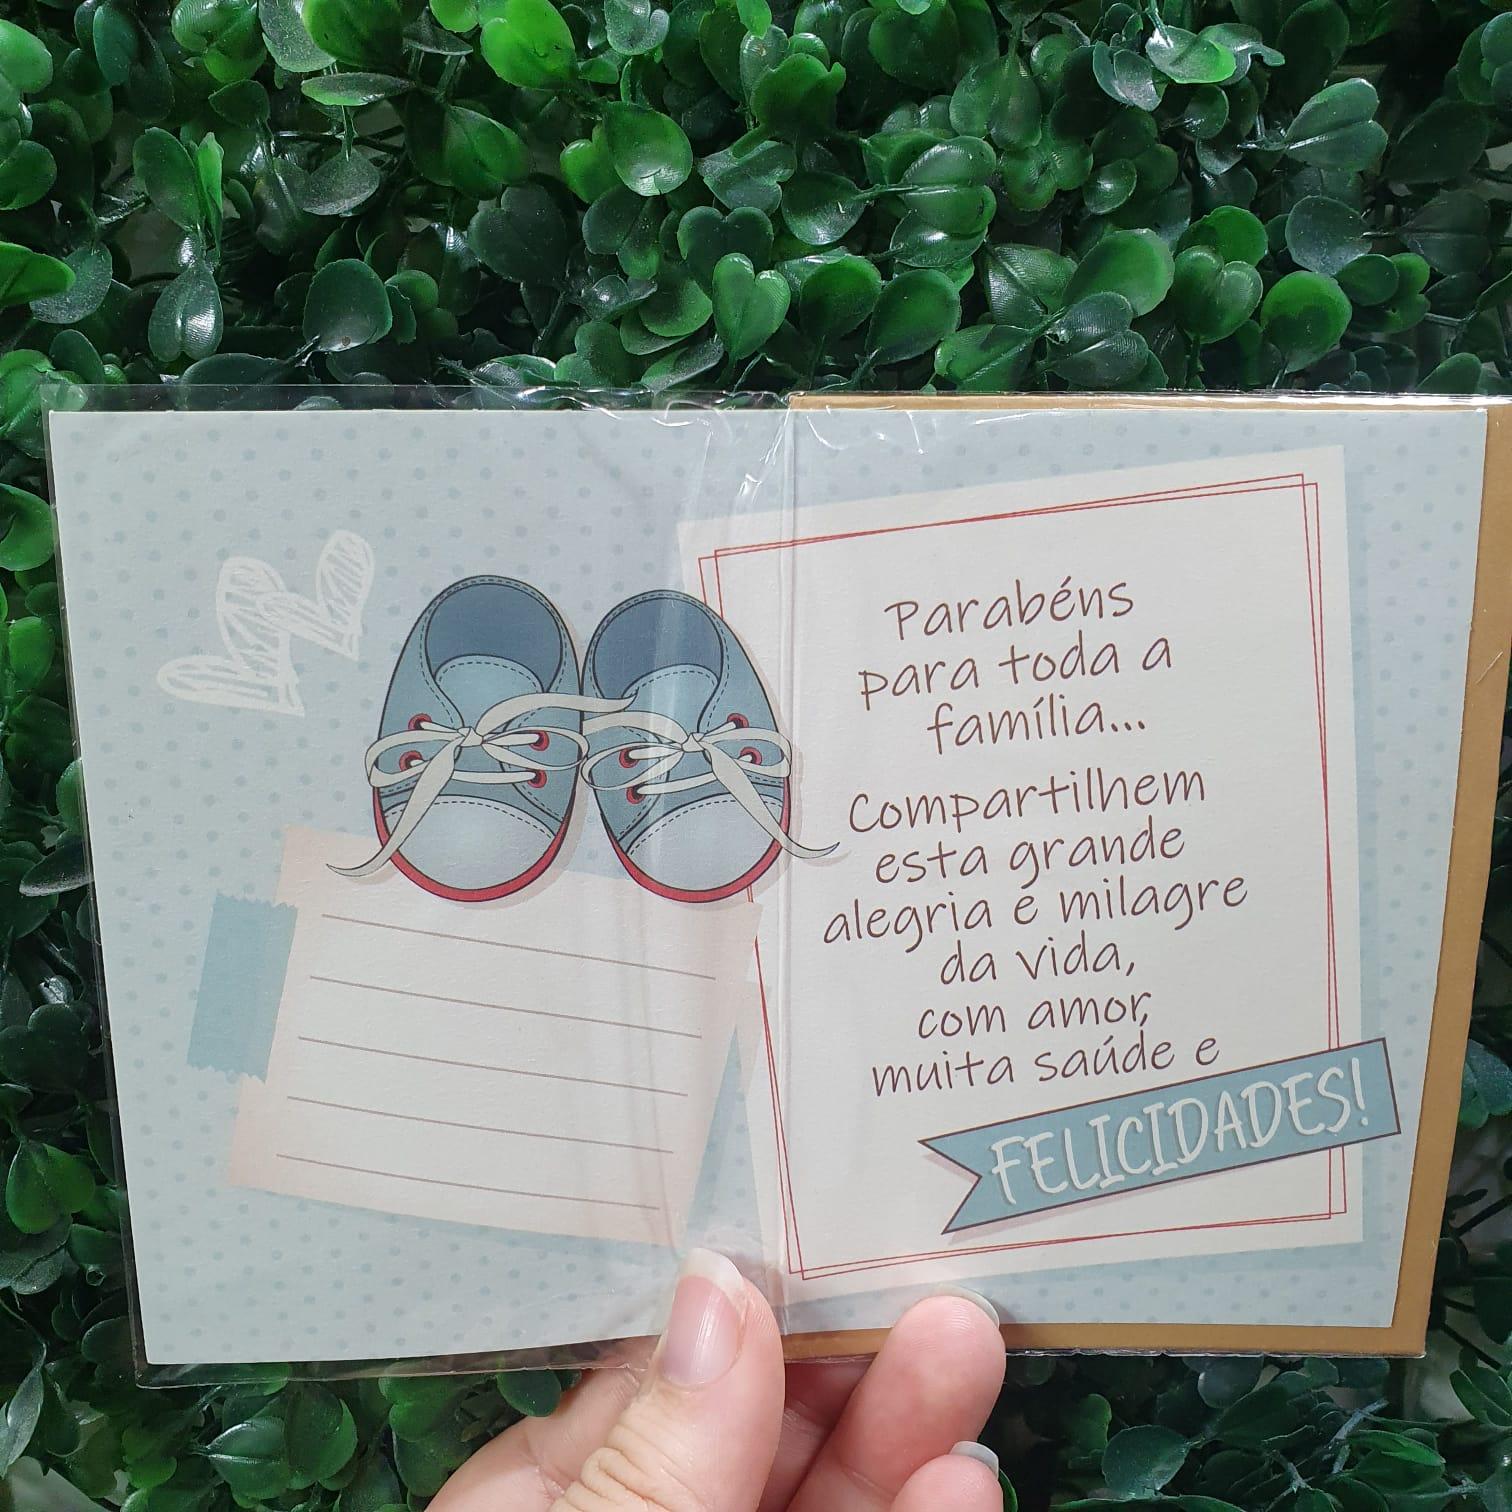 Parabéns
para toda a
família...
Compartilhem
esta grande
alegria e milagre
da vida,
com amor,
muita saúde e
FELICIDADES!